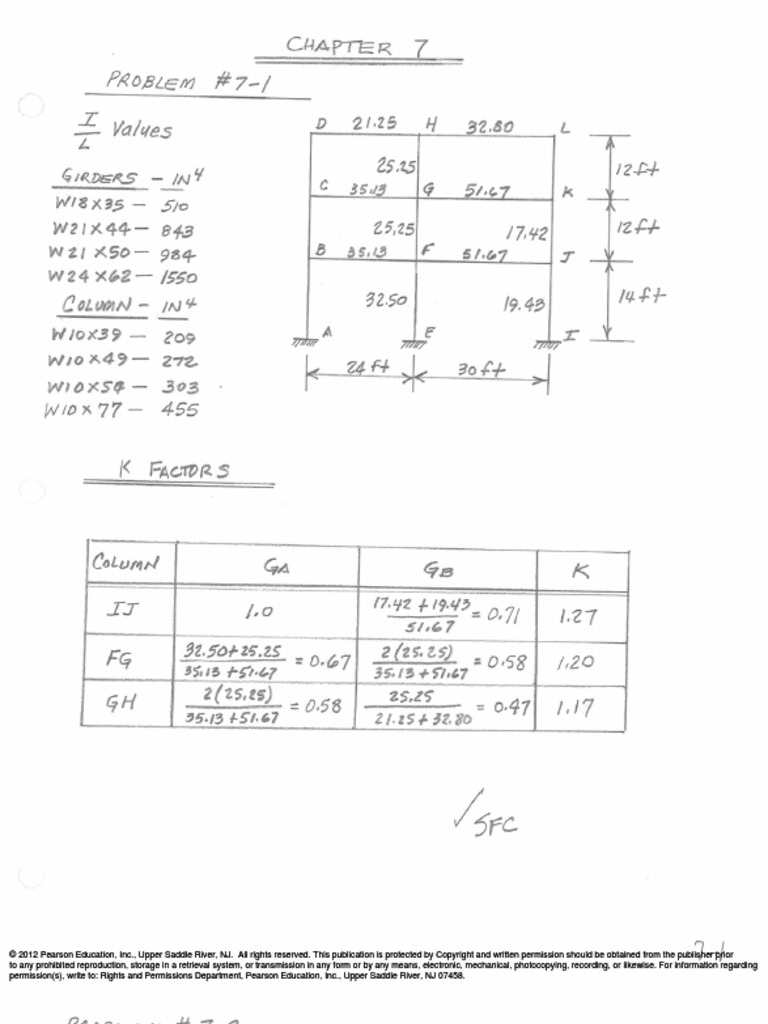 CHAPTER 7
PROBLEM #7-1
I/L Values
GIRDERS - IN⁴
W18X35 - 510
W21X44 - 843
W21X50 - 984
W24X62 - 1550
COLUMN - IN⁴
W10X39 - 209
W10X49 - 272
W10X54 - 303
W10X77 - 455
D 21.25 H 32.80 L
25.25 12ft
C 35.13 G 51.67 K
25.25 17.42 12ft
B 35.13 F 51.67 J
32.50 19.43 14ft
A E I
24 ft 30 ft
K FACTORS
COLUMN GA GB K
IJ 1.0 (17.42+19.43)/51.67 = 0.71 1.27
FG (32.50+25.25)/(35.13+51.67) = 0.67 2(25.25)/(35.13+51.67) = 0.58 1.20
GH 2(25.25)/(35.13+51.67) = 0.58 25.25/(21.25+32.80) = 0.47 1.17
✓ SFC
7-1
© 2012 Pearson Education, Inc., Upper Saddle River, NJ. All rights reserved. This publication is protected by Copyright and written permission should be obtained from the publisher prior
to any prohibited reproduction, storage in a retrieval system, or transmission in any form or by any means, electronic, mechanical, photocopying, recording, or likewise. For information regarding
permission(s), write to: Rights and Permissions Department, Pearson Education, Inc., Upper Saddle River, NJ 07458.